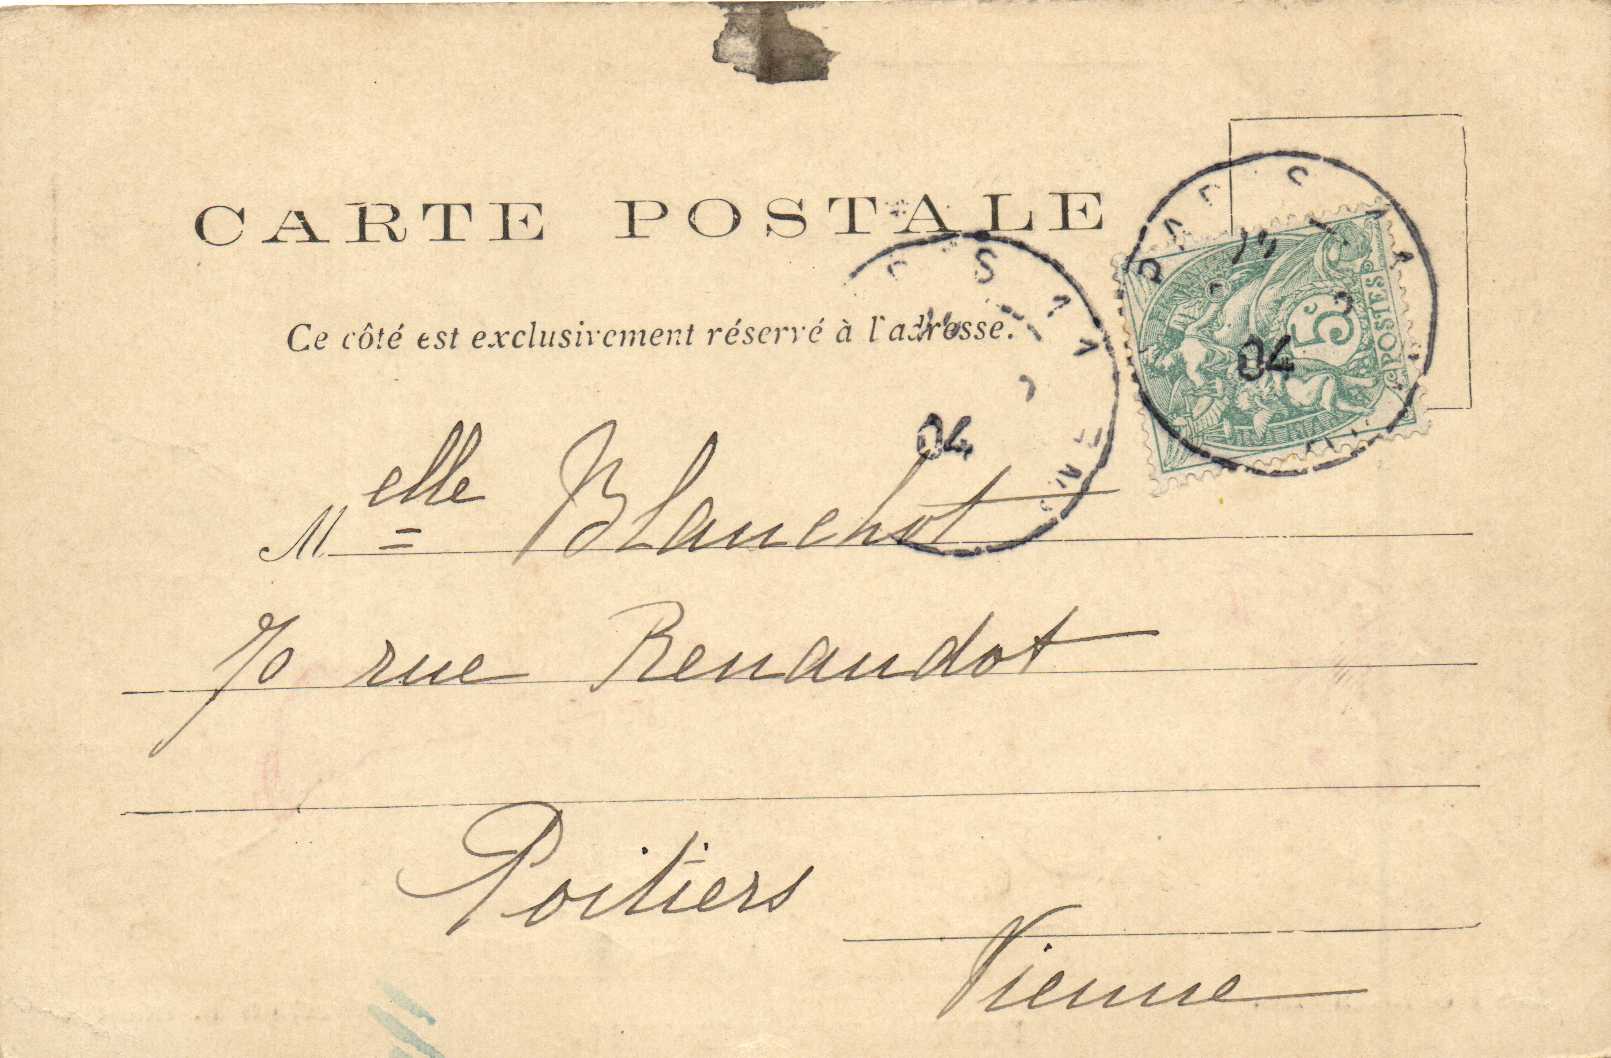 CARTE POSTALE
Ce côté est exclusivement réservé à l'adresse.
5c
POSTES
04
04
Melle Blanchot
rue Renaudot
Poitiers
Vienne